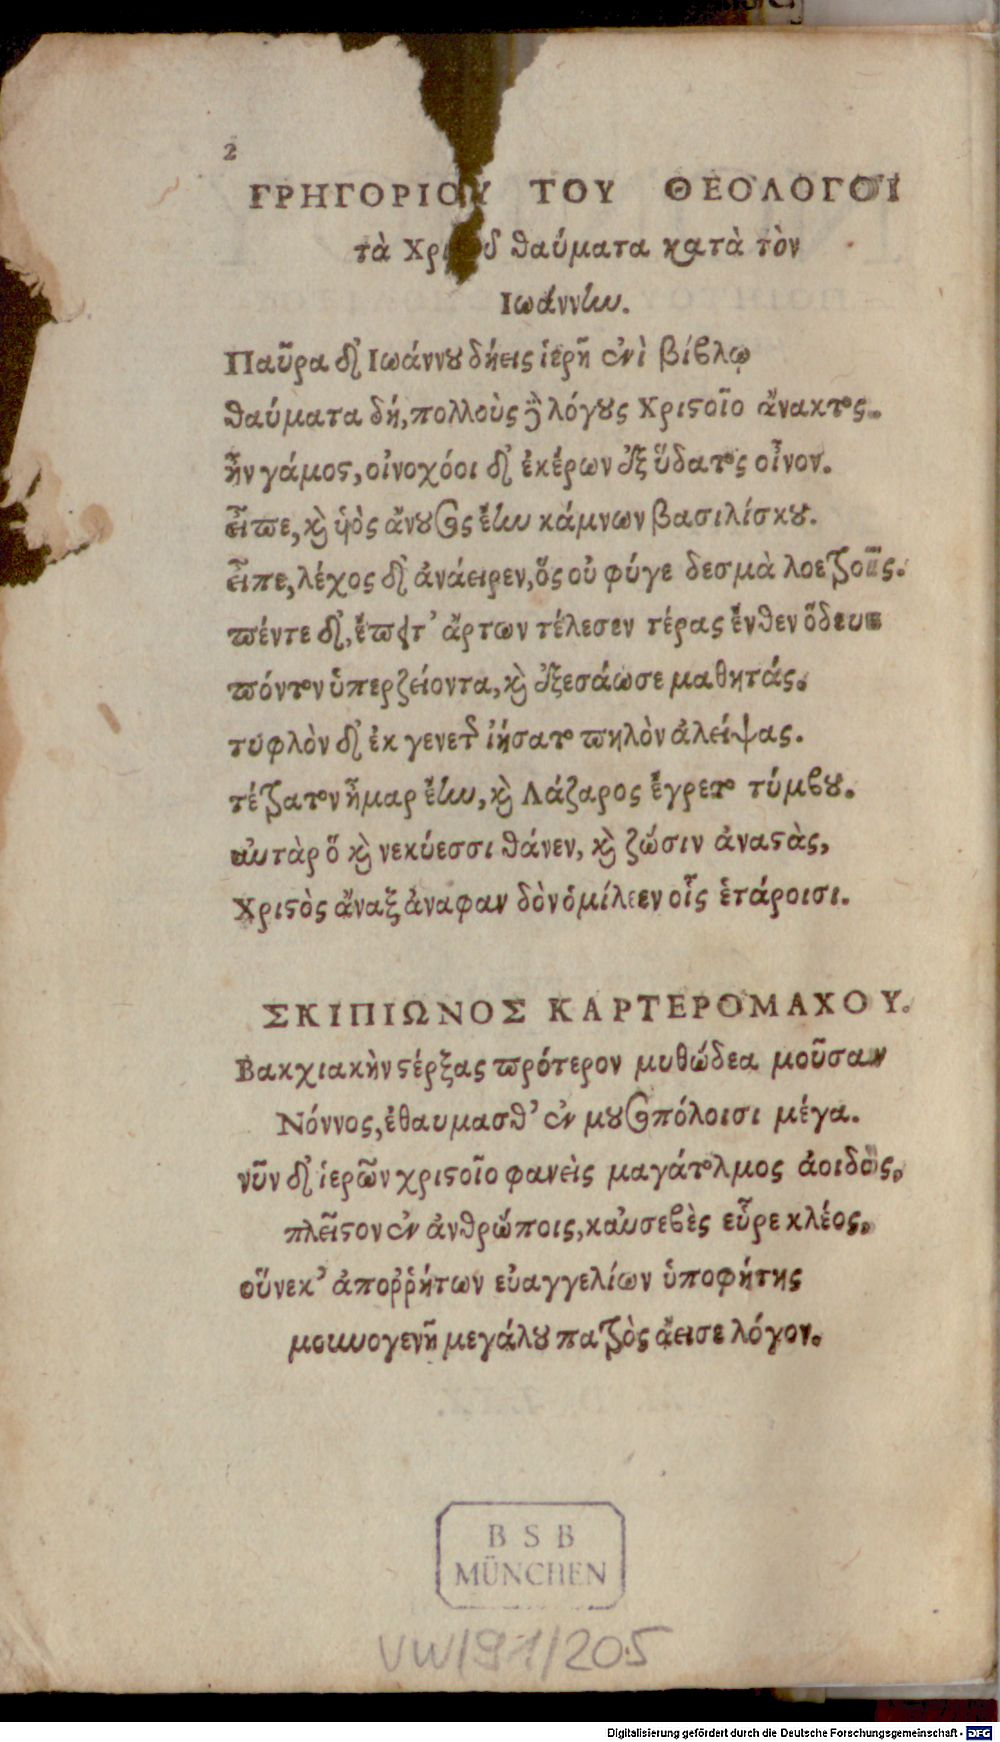 2
ΓΡΗΓΟΡΙΟΥ ΤΟΥ ΘΕΟΛΟΓΟΥ
τὰ Χριϛοῦ θαύματα κατὰ τὸν
Ιωάννην.
Παῦρα δ' Ιωάννου δήεις ἱερῇ ἐνὶ βίβλῳ
θαύματα δή, πολλοὺς δὲ λόγους Χριϛοῖο ἄνακτος.
ἦν γάμος, οἰνοχόοι δ' ἐκέρων ἐξ ὕδατος οἶνον.
εἶπε, καὶ υἱὸς ἄνουσος ἔην κάμνων βασιλίσκου.
εἶπε, λέχος δ' ἀνάειρεν, ὅς οὐ φύγε δεσμὰ λοεζοῖς.
πέντε δ', ἔπειτ' ἄρτων τέλεσεν τέρας ἔνθεν ὅδευε
πόντον ὑπερζείοντα, καὶ ἐξεσάωσε μαθητάς.
τυφλὸν δ' ἐκ γενετῆς ἰήσατο πηλὸν ἀλείψας.
τέτρατον ἦμαρ ἔην, καὶ Λάζαρος ἔγρετο τύμβου.
αὐτὰρ ὅ καὶ νεκύεσσι θάνεν, καὶ ζώσιν ἀναϛὰς,
Χριϛὸς ἄναξ ἀναφανδὸν ὁμίλεεν οἷς ἑτάροισι.
ΣΚΙΠΙΩΝΟΣ ΚΑΡΤΕΡΟΜΑΧΟΥ.
Βακχιακὴν ϛέρξας πρότερον μυθώδεα μοῦσαν
Νόννος, ἐθαυμασθ' ἐν μουσοπόλοισι μέγα.
νῦν δ' ἱερῶν χριϛοῖο φανεὶς μαγάτολμος ἀοιδὸς,
πλεῖϛον ἐν ἀνθρώποις, καὐσεβὲς εὗρε κλέος,
οὕνεκ' ἀποῤῥήτων εὐαγγελίων ὑποφήτης
μουνογενῆ μεγάλου πατρὸς ἄεισε λόγον.
BSB
MÜNCHEN
VW/91/205
Digitalisierung gefördert durch die Deutsche Forschungsgemeinschaft - DFG